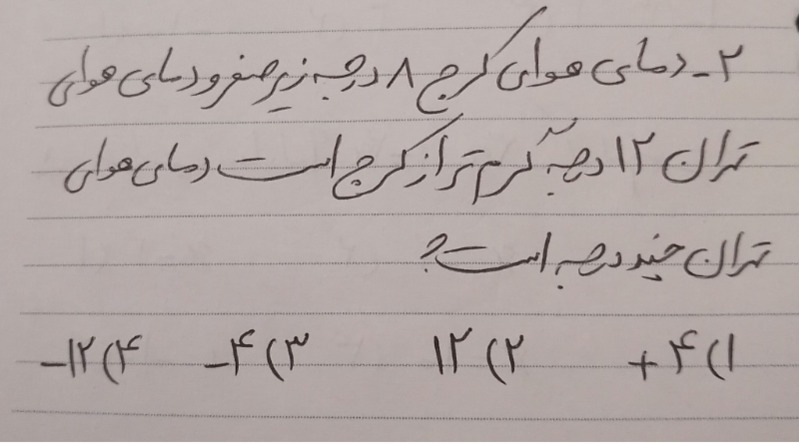 ۲- دمای هوای کرج ۸ درجه زیر صفر و دمای هوای
تهران ۱۲ درجه گرم تر از کرج است دمای هوای
تهران چند درجه است؟
۱) ۴+ ۲) ۱۲ ۳) ۴- ۴) ۱۲-